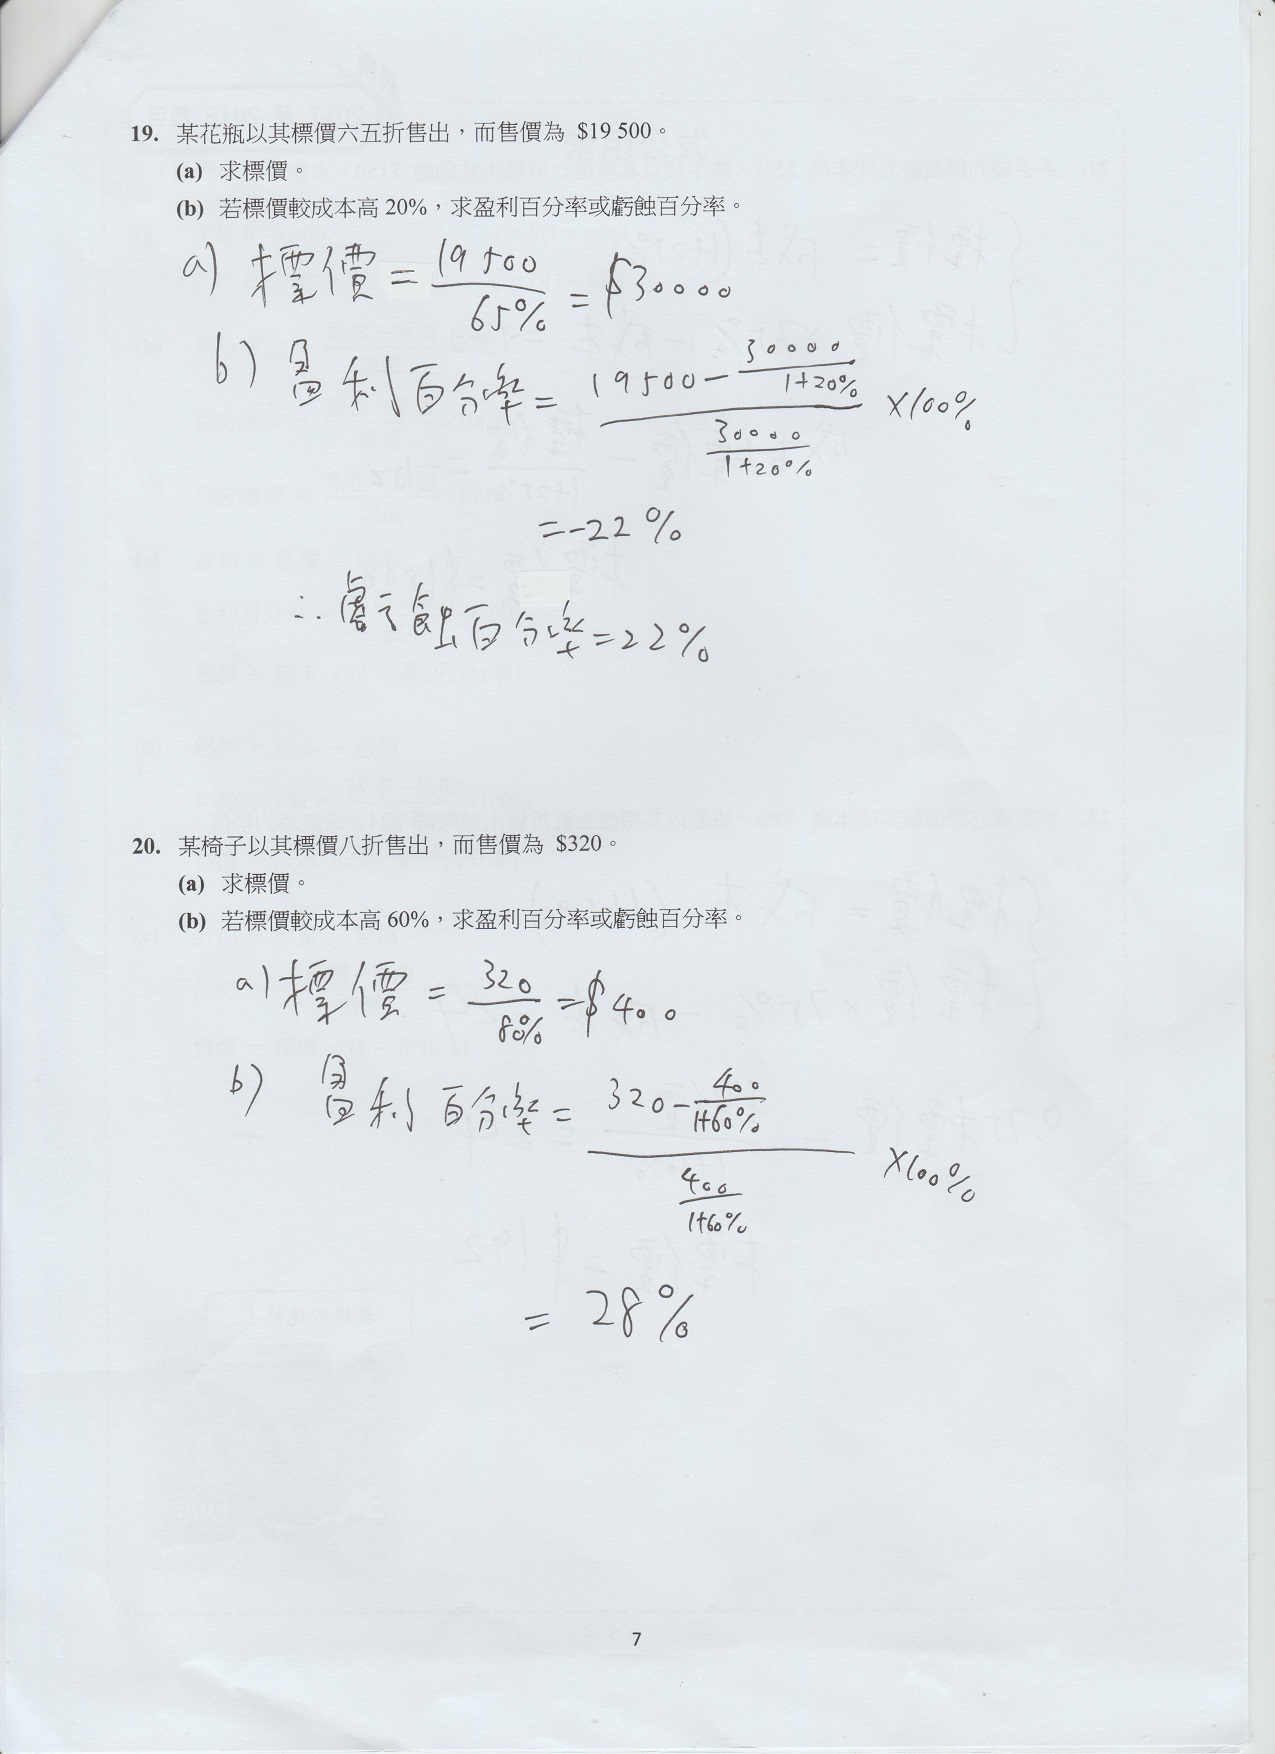 19. 某花瓶以其標價六五折售出，而售價為 $19 500。
(a) 求標價。
(b) 若標價較成本高 20%，求盈利百分率或虧蝕百分率。
a) 標價 = 19500 / 65% = $30000
b) 盈利百分率 = (19500 - 30000 / (1+20%)) / (30000 / (1+20%)) ×100%
= -22%
∴ 虧蝕百分率 = 22%
20. 某椅子以其標價八折售出，而售價為 $320。
(a) 求標價。
(b) 若標價較成本高 60%，求盈利百分率或虧蝕百分率。
a) 標價 = 320 / 80% = $400
b) 盈利百分率 = (320 - 400 / (1+60%)) / (400 / (1+60%)) ×100%
= 28%
7